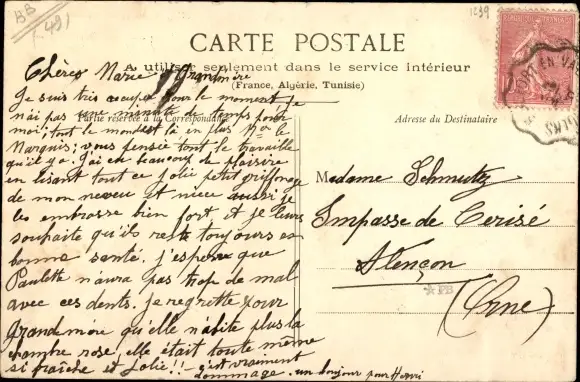 BB
(49)
1239
CARTE POSTALE
A utiliser seulement dans le service intérieur
(France, Algérie, Tunisie)
Partie réservée à la Correspondance
Adresse du Destinataire
Chères Marie Grandmère
Je suis très occupée pour le moment je
n'ai pas une minute de temps pour
moi; tout le monde est là en plus le
Marquis; vous pensée tout le travaille
qu'il y a. J'ai eu beaucoup de plaisire
en lisant tout ce jolie petit griffonage
de mon neveu et niece aussi je
les embrasse bien fort et je leurs
souhaite qu'ils reste toujours en
bonne santé. j'espère que
Paulette n'aura pas trop de mal
avec ces dents. je regrette pour
Grandmère qu'elle n'abite plus la
chambre rose, elle était toute même
si fraîche et Jolie!! c'est vraiment
dommage. un bonjour pour Henri
Madame Schmutz
Impasse de Cerisé
Alençon
(Orne)
PB